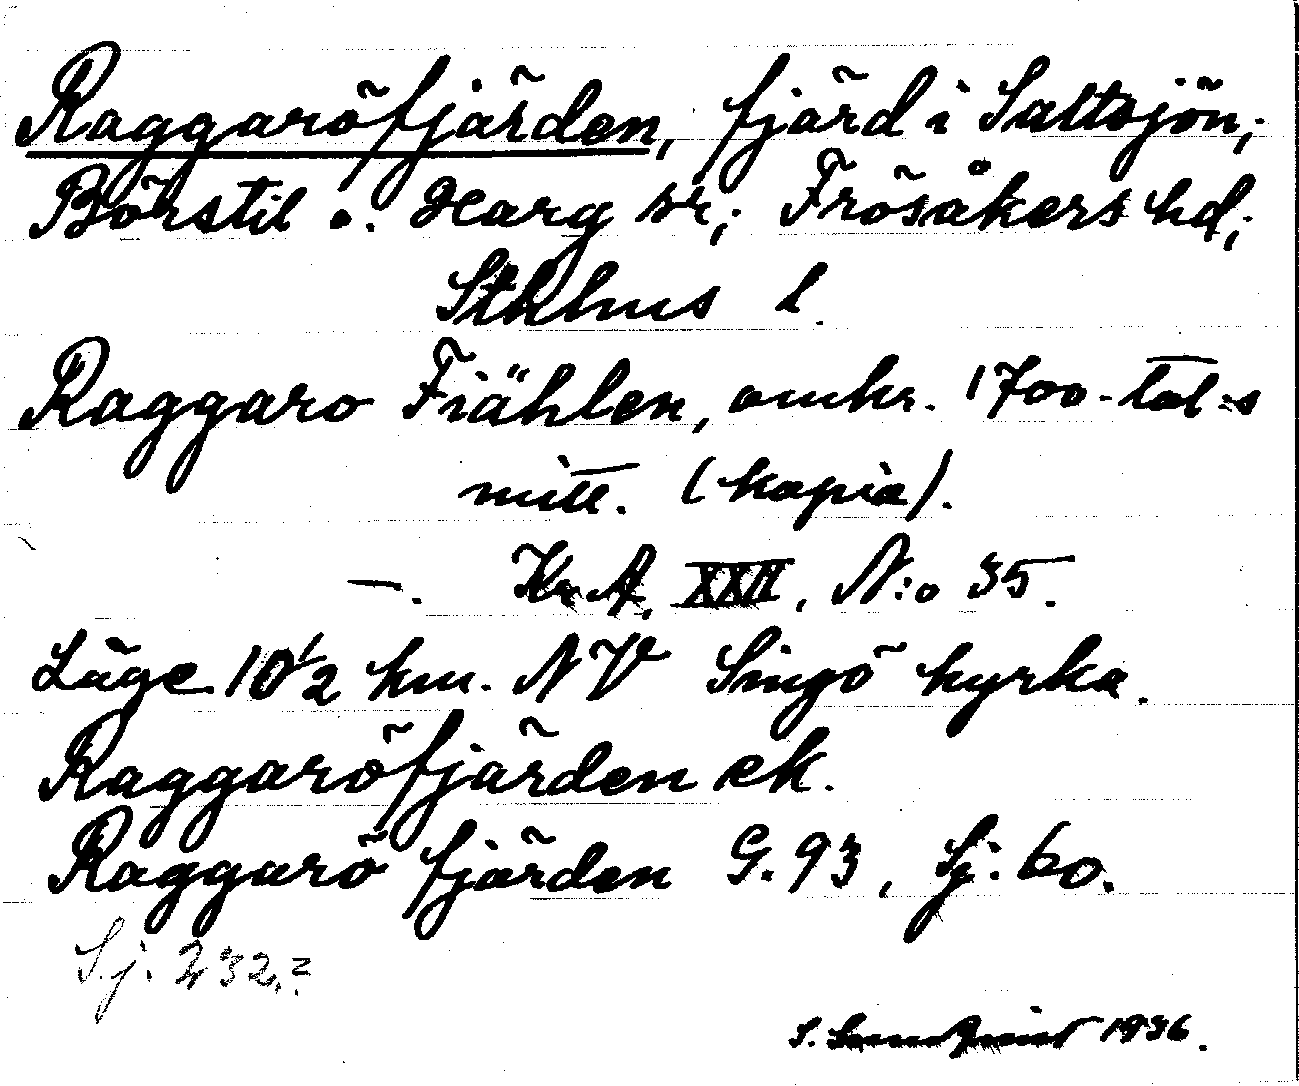 Raggaröfjärden, fjärd i Saltsjön;
Börstil o. Harg sn; Frösåkers hd;
Stkhms l.
Raggaro Fiählen, omkr. 1700-tal-s
mitt. (kopia).
—. Kr A. XXII, N:o 35.
Läge 10 1/2 km. NV Singö kyrka.
Raggaröfjärden ek.
Raggarö fjärden G. 93, Sj. 60.
Sj. 232.
S. 1936.